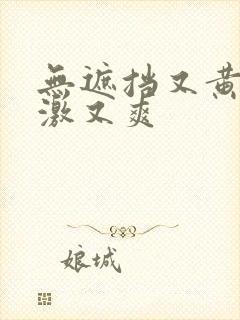 無遮挡又黄
激又爽
娘城